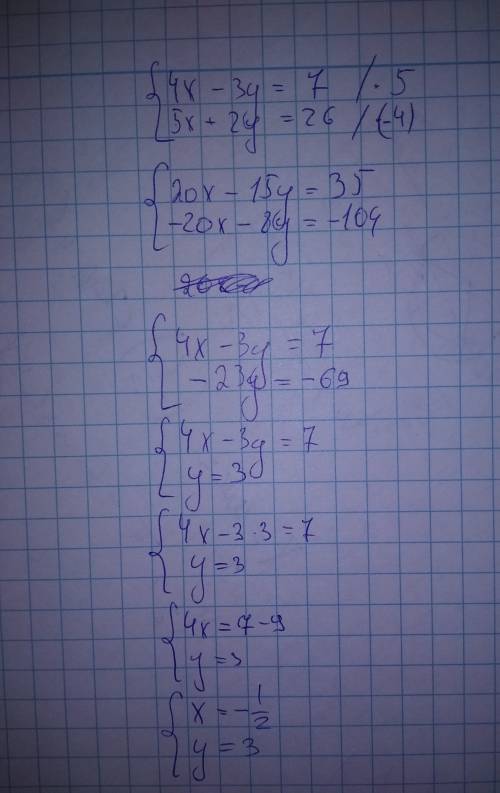 4x - 3y = 7 / · 5
5x + 2y = 26 / (-4)
20x - 15y = 35
-20x - 8y = -104
4x - 3y = 7
-23y = -69
4x - 3y = 7
y = 3
4x - 3 · 3 = 7
y = 3
4x = 7 - 9
y = 3
x = -1/2
y = 3